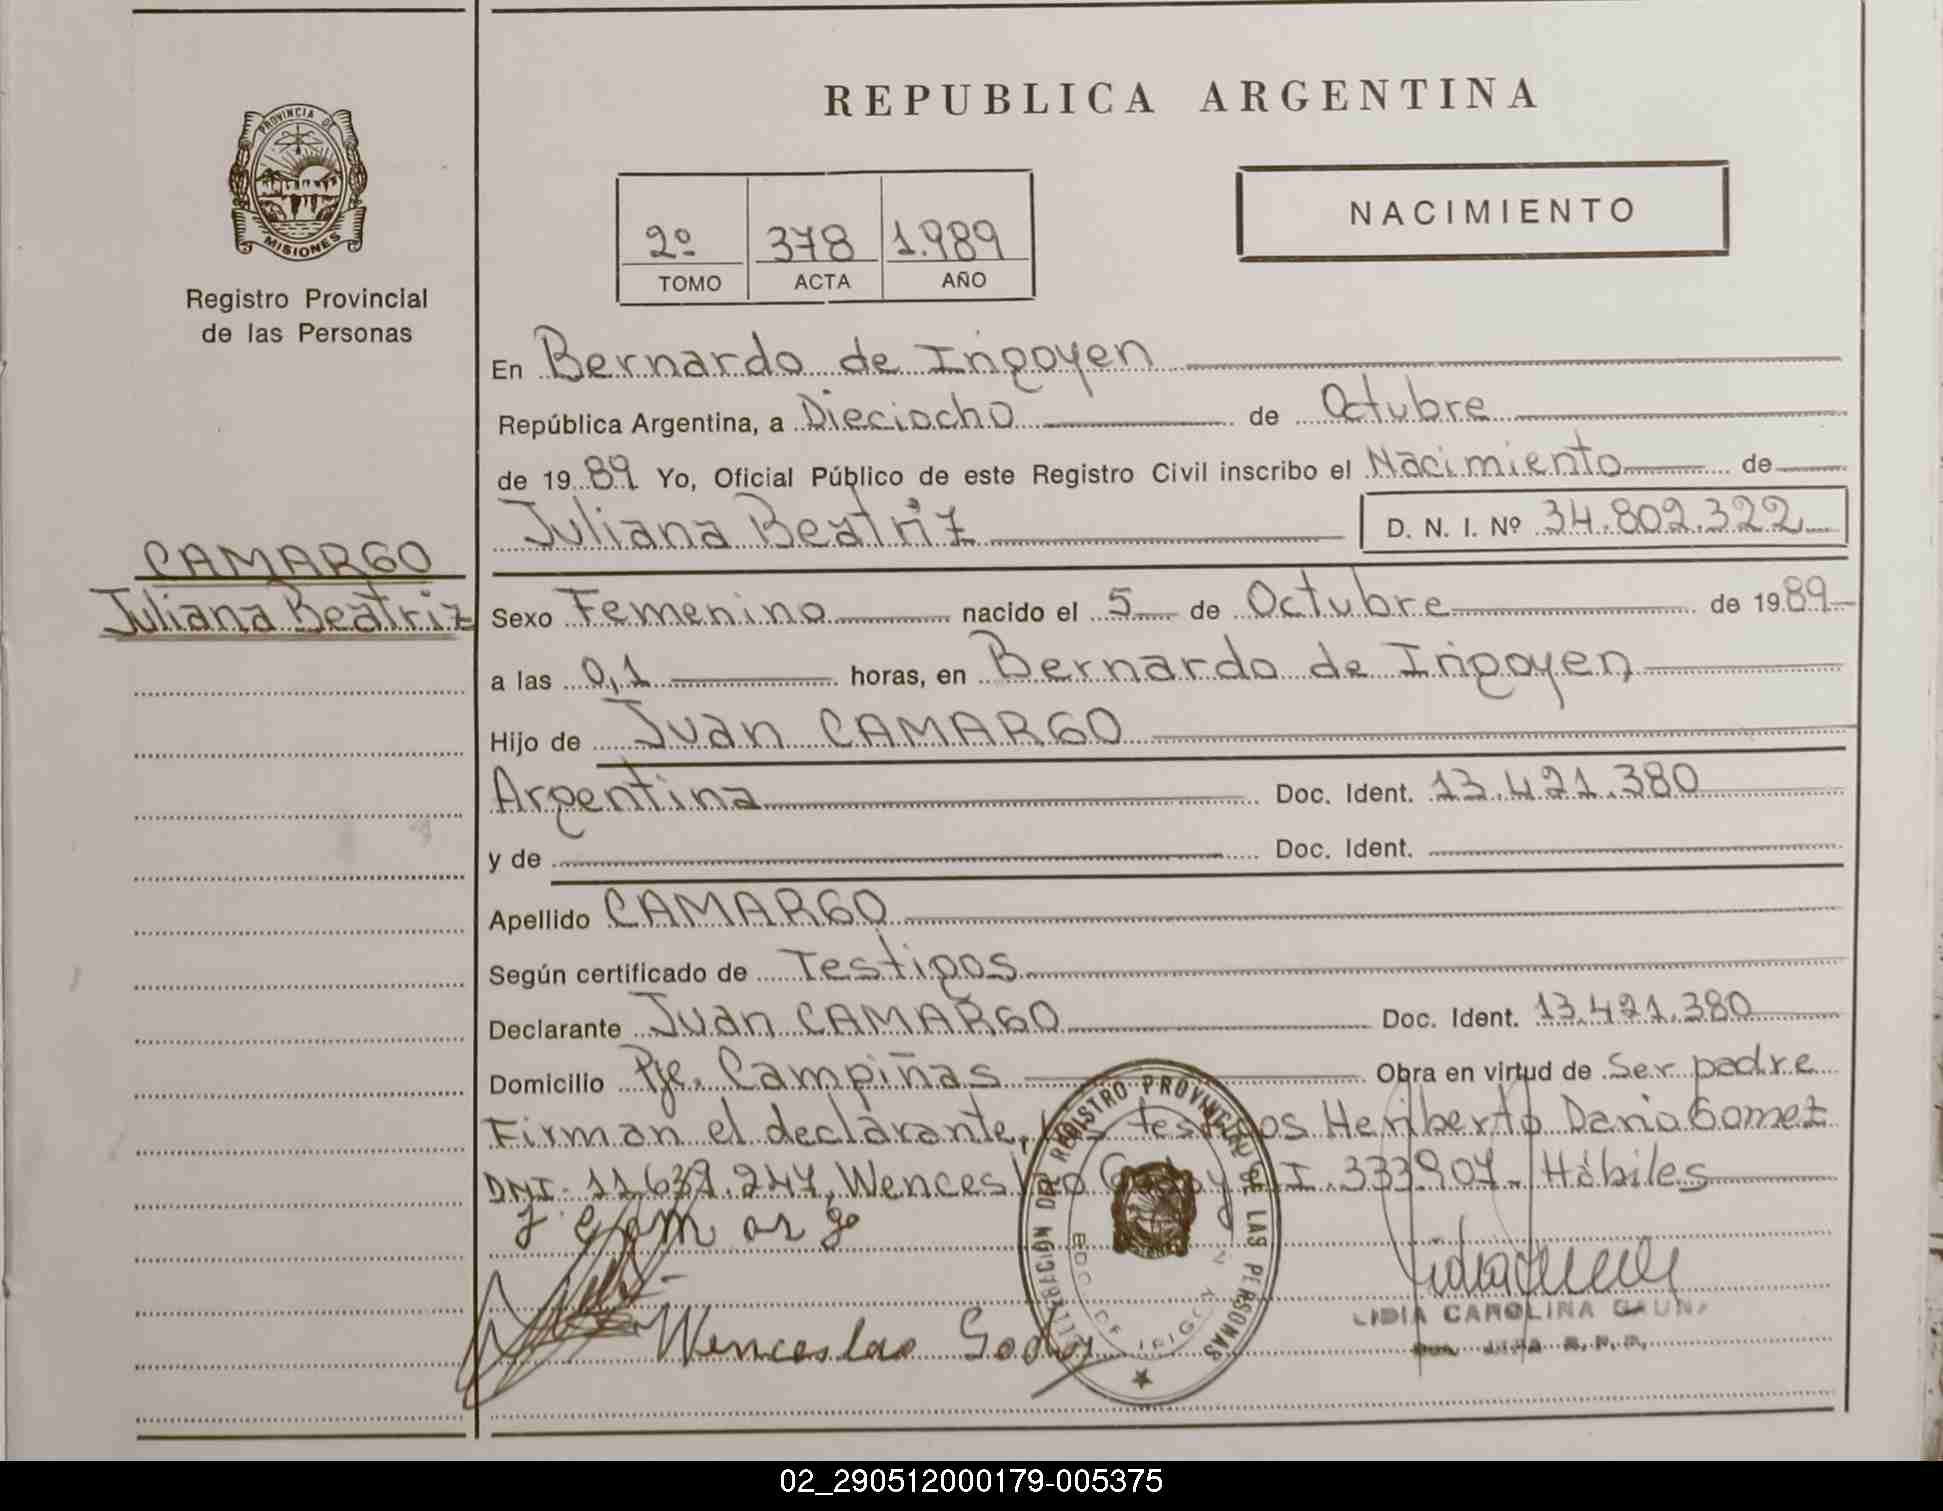 REPUBLICA ARGENTINA
PROVINCIA DE
MISIONES
Registro Provincial
de las Personas
NACIMIENTO
2º 378 1.989
TOMO ACTA AÑO
En Bernardo de Irigoyen
República Argentina, a Dieciocho de Octubre
de 1989 Yo, Oficial Público de este Registro Civil inscribo el Nacimiento de
Juliana Beatriz D. N. I. Nº 34.802.322
CAMARGO
Juliana Beatriz
Sexo Femenino nacido el 5 de Octubre de 1989
a las 0,1 horas, en Bernardo de Irigoyen
Hijo de Juan CAMARGO
Argentina Doc. Ident. 13.421.380
y de Doc. Ident.
Apellido CAMARGO
Según certificado de Testigos
Declarante Juan CAMARGO Doc. Ident. 13.421.380
Domicilio Pje. Campiñas Obra en virtud de Ser padre
Firman el declarante, los testigos Heriberto Dario Gomez
DNI. 11.639.247, Wenceslao Godoy CI. 333.907. Hábiles
J. Camargo
Wenceslao Godoy
REGISTRO PROVINCIAL DE LAS PERSONAS
LIDIA CAROLINA GAUNA
02_290512000179-005375